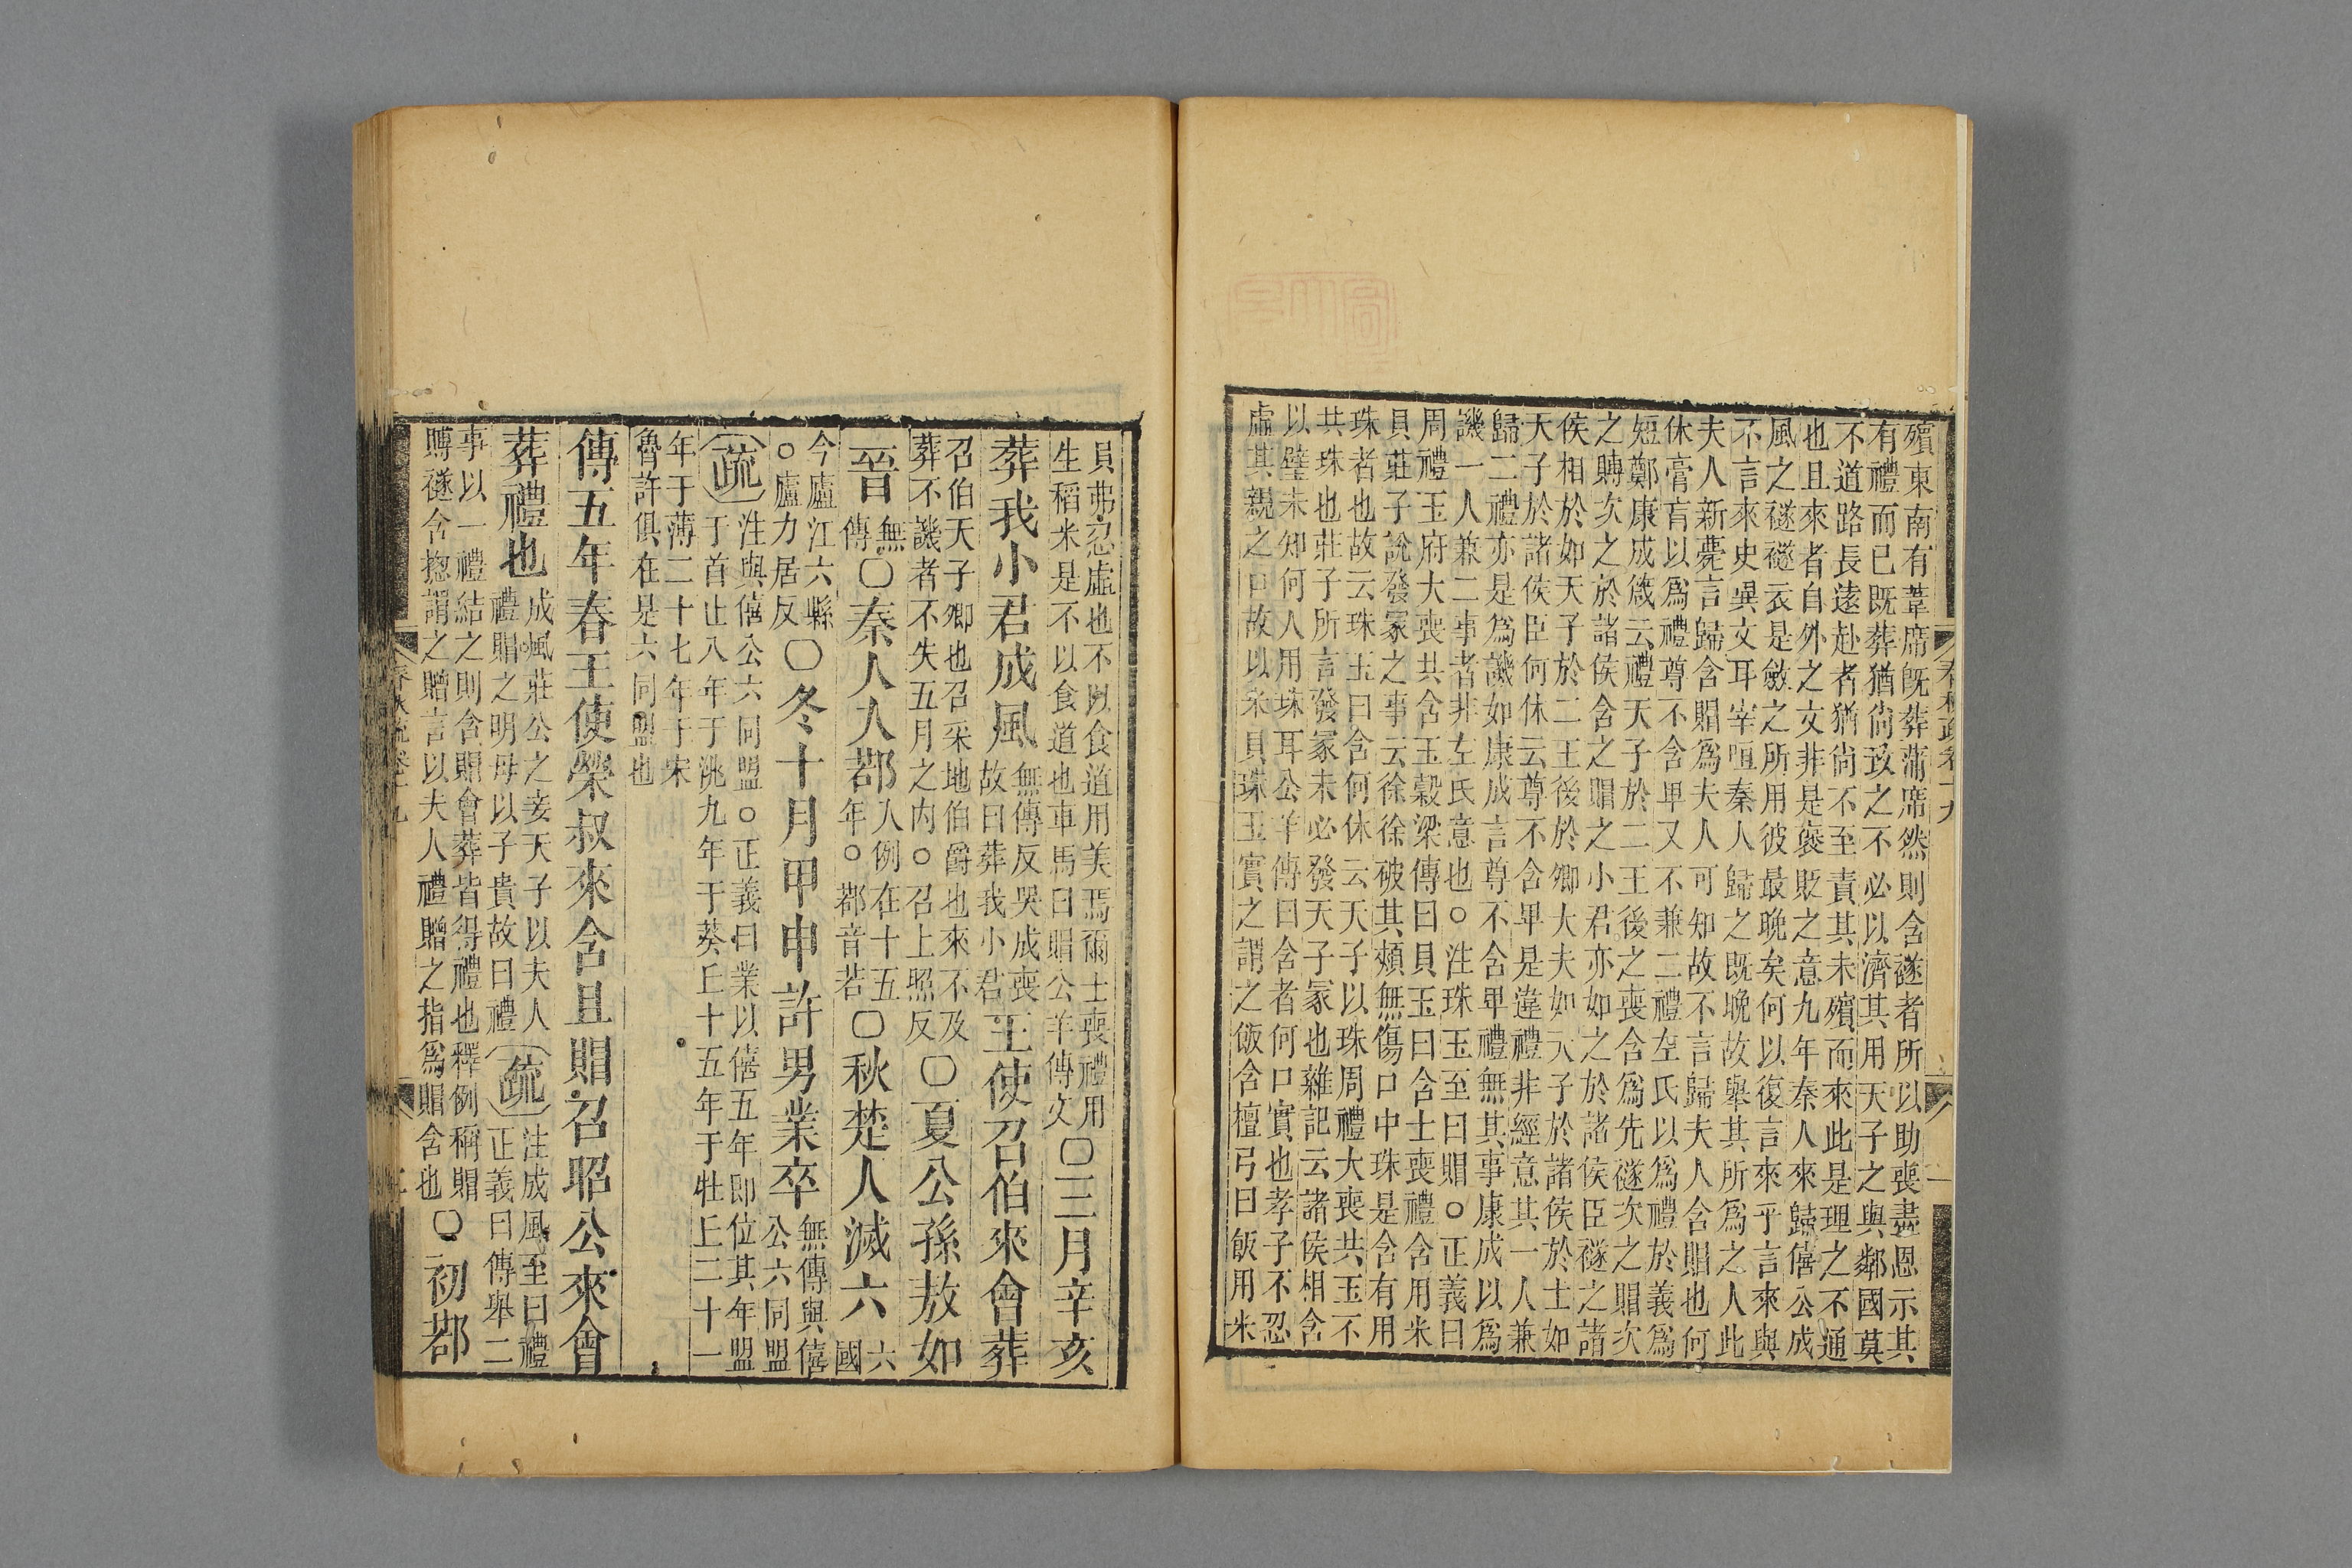 殯東南有葦席既葬蒲席然則含襚者所以助喪盡恩示其
有禮而已既葬猶尚致之不必以濟其用天子之與鄰國莫
不道路長遠赴者猶尚不至責其未殯而來此是理之不通
也且來者自外之文非是襃貶之意九年秦人來歸僖公成
風之襚襚衣是斂之所用彼最晚矣何以復言來乎言來與
不言來史異文耳宰咺秦人歸之既晚故舉其所爲之人此
夫人新薨言歸含賵爲夫人可知故不言歸夫人含賵也何
休膏肓以爲禮尊不含卑又不兼二禮左氏以爲禮於義爲
短鄭康成箴云禮天子於二王後之喪含爲先襚次之賵次
之賻次之於諸侯含之賵之小君亦如之於諸侯臣襚之諸
侯相於如天子於二王後於卿大夫如天子於諸侯於士如
天子於諸侯臣何休云尊不含卑是違禮非經意其一人兼
歸二禮亦是爲譏如康成言尊不含卑禮無其事康成以爲
譏一人兼二事者非左氏意也○注珠玉至曰賵○正義曰
周禮玉府大喪共含玉穀梁傳曰貝玉曰含士喪禮含用米
貝莊子說發冢之事云徐徐破其頰無傷口中珠是含有用
珠者也故云珠玉曰含何休云天子以珠周禮大喪共玉不
共珠也莊子所言發冢未必發天子冢也雜記云諸侯相含
以璧未知何人用珠耳公羊傳曰含者何口實也孝子不忍
虛其親之口故以米貝珠玉實之謂之飯含檀弓曰飯用米
春秋疏卷十九
貝弗忍虛也不以食道用美焉爾士喪禮用
生稻米是不以食道也車馬曰賵公羊傳文
○三月辛亥
葬我小君成風
無傳反哭成喪
故曰葬我小君
王使召伯來會葬
召伯天子卿也召采地伯爵也來不及
葬不譏者不失五月之内○召上照反
○夏公孫敖如
晉
無
傳
○秦人入鄀
入例在十五
年○鄀音若
○秋楚人滅六
六
國
今廬江六縣
○廬力居反
○冬十月甲申許男業卒
無傳與僖
公六同盟
疏
注與僖公六同盟○正義曰業以僖五年即位其年盟
于首止八年于洮九年于葵丘十五年于牡丘二十一
年于薄二十七年于宋
魯許俱在是六同盟也
傳五年春王使榮叔來含且賵召昭公來會
葬禮也
成風莊公之妾天子以夫人
禮賵之明母以子貴故曰禮
疏
注成風至曰禮
正義曰傳舉二
事以一禮結之則含賵會葬皆得禮也釋例稱賵
賻襚含揔謂之贈言以夫人禮贈之指爲賵含也
○初鄀
春秋疏卷十九